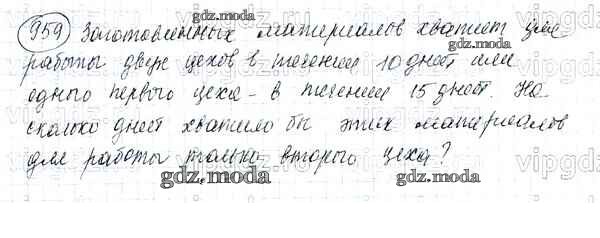 959) Заготовленных материалов хватит для
работы двух цехов в течении 10 дней или
одного первого цеха - в течении 15 дней. На
сколько дней хватило бы этих материалов
для работы только второго цеха?
gdz.moda
gdz.moda
gdz.moda
gdz.moda
gdz.moda
gdz.moda